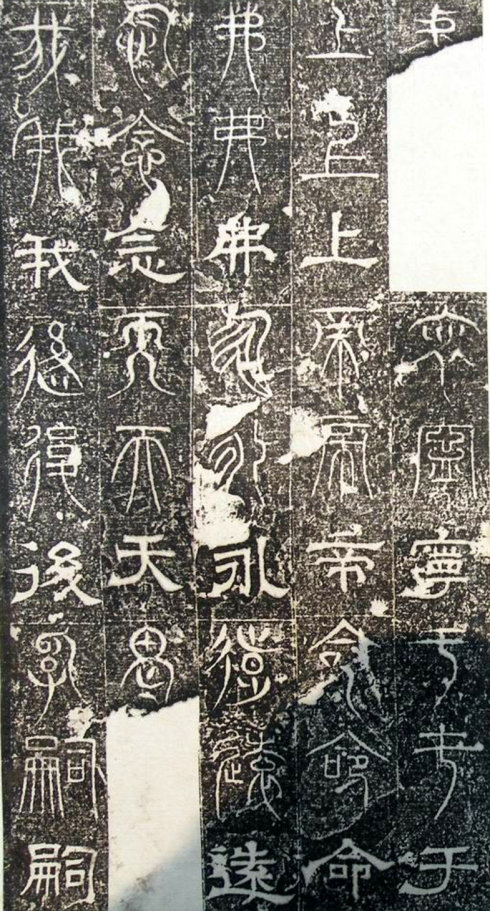 寧寧寧于于于
上上上帝帝帝命命命
弗弗弗永永永遠遠遠
念念念天天天畏
我我我後後後嗣嗣嗣